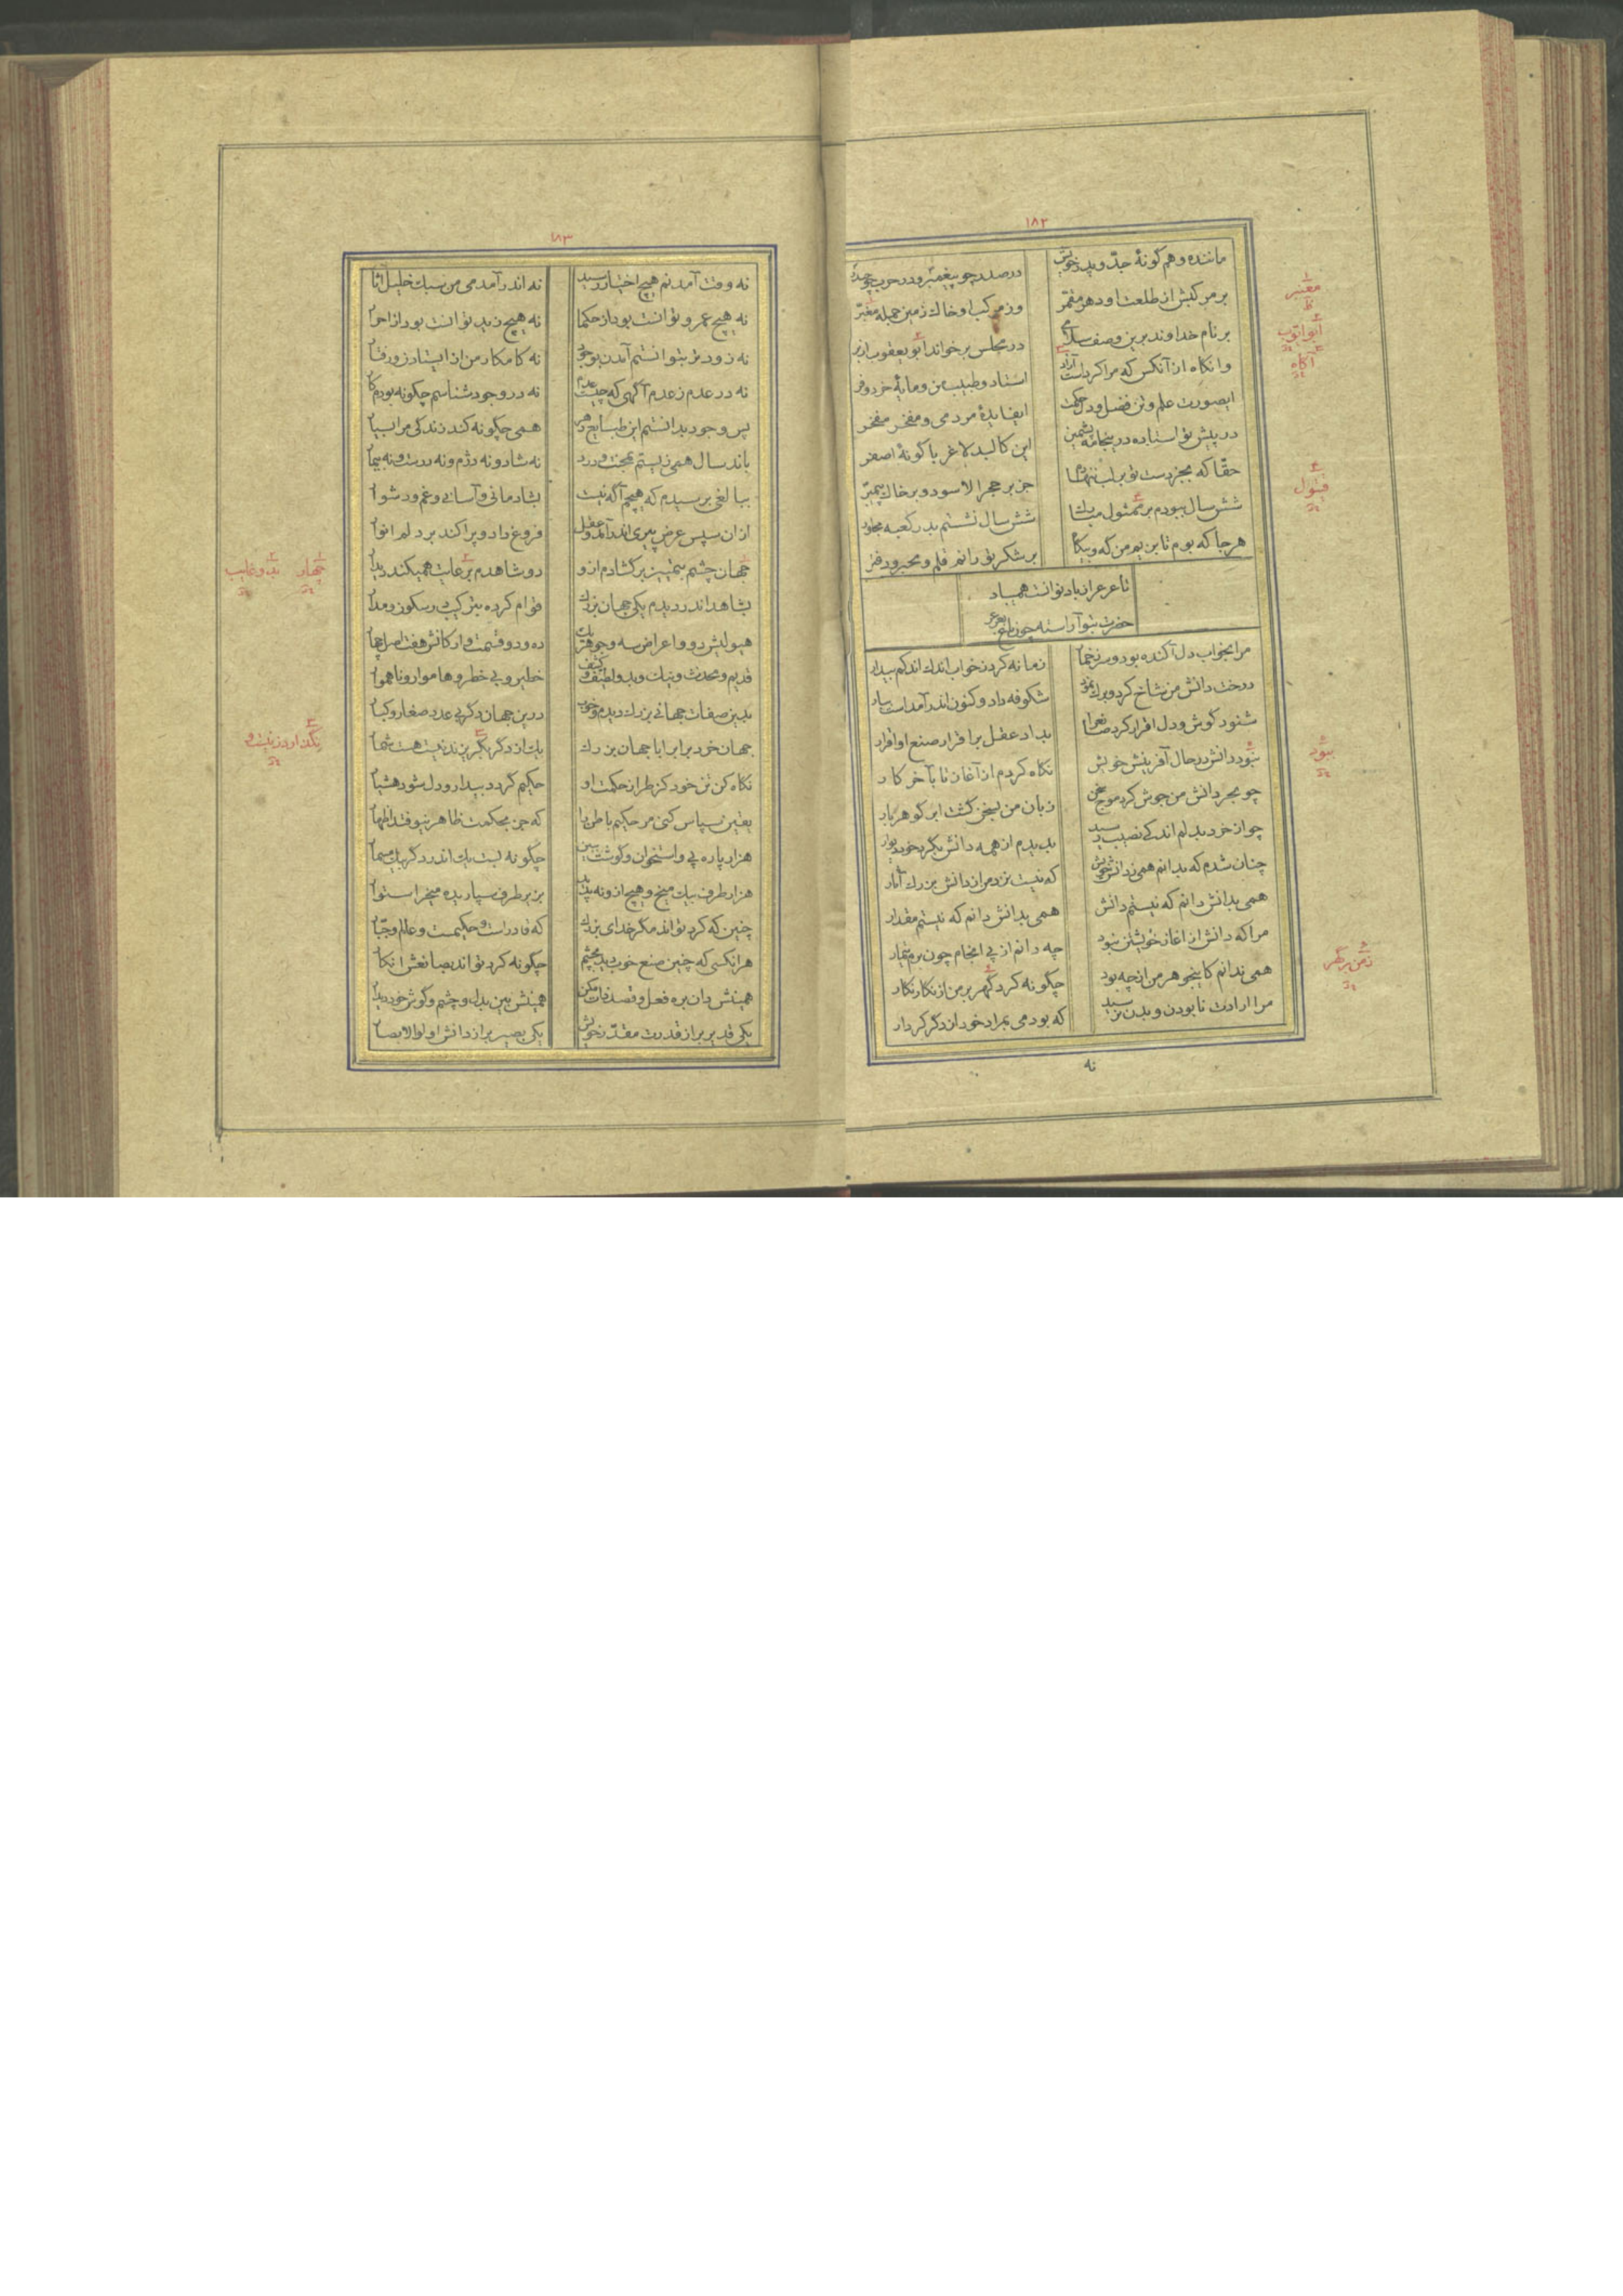 ۱۸۲
ماننده و هم گونهٔ جدّ و پدر خویش
در صدر چو پیغمبر و در حرب چو حیدر
بر مرکبش از طلعت او دهر مقمّر
وز مرکب او خاک زمین جمله مغبّر
بر نام خداوند برین وصف سلامی
در مجلس برخواند ابو یعقوب از بر
وانکاه از آنکس که مرا کردست آزاد
استاد و طبیب من و مایهٔ خرد و فر
ایصورت علم و تن فضل و دل حکمت
ایفایدهٔ مردمی و مفخر مفخر
در پیش تو استاده درینجامهٔ پشمین
این کالبد لاغر با گونهٔ اصفر
حقّا که بجز دست تو بر لب ننهادم
جز بر حجر الاسود و بر خاک پیمبر
شش سال ببودم بر ممثول مبارک
شش سال نشستم بدر کعبه مجاور
هر جا که بوم تا بزیم من که و بیگاه
بر شکر تو رانم قلم و محبر و دفتر
تا عرعر از باد نوانست همیباد
حضرت بتو آراسته چون باغ بعرعر
مرا بخواب دل آکنده بود و سر ز خمار
زمانه کرد ز خواب اندک اندکم بیدار
درخت دانش من شاخ کرد و برک نمود
شکوفه داد و کنون اندر آمداست ببار
شنود گوش و دل اقرار کرد صانع را
بداد عقل بر اقرار صنع او اقرار
نبود دانش در حال آفرینش خویش
نکاه کردم از آغاز تا بآخر کار
چو بحر دانش من جوش کرد موج سخن
زبان من بسخن کشت ابر کوهر بار
چو از خرد بدلم اندکی نصیب رسید
بدیدم از همه دانش بکرد خود دیوار
چنان شدم که بدانم همی ز دانش خویش
که نیست نزد مرا ز دانش بزرک آثار
همی بدانش دانم که نیستم دانش
همی بدانش دانم که نیستم مقدار
مرا که دانش از اغاز خویشتن نبود
چه دانم از پی انجام چون برم تیمار
همی ندانم کاینجوهر من از چه بود
چگونه کرد گهر بر من از نکار نکار
مرا ارادت نابودن و بدن نرسید
که بودمی بمراد خود از دگر کردار
نه
مغبر
ابو ایوب
آکاه
قبول
ببود
زمن برگهر
۱۸۳
نه وقت آمدنم هیچ اختیار رسید
نه اندر آمدمی من سبک خلیل آثار
نه هیچ عمرو توانست بود از حکما
نه هیچ زید توانست بود از احرار
نه زودتر بتوانستم آمدن بوجود
نه کامکار من از ایستادن و رفتار
نه در عدم ز عدم آگهی که چیست عدم
نه در وجود شناسم چگونه بودم کار
پس وجود بدانستم این طبایع دهر
همی چگونه کند زندگی مرا بسیار
باند سال همی زیستم بمحنت و درد
نه شاد و نه دژم و نه درست و نه بیمار
ببالغی برسیدم که هیچم آگه نیست
بشادمانی و آسانی و غم و دشوار
از ان سپس عرض پیری اندر آمد و عقل
فروغ داد و پراکند بر دلم انوار
جهان چشم بتمییز بر گشادم ازو
دو شاهدم بر غایت همیکند دیدار
بشاهد اندر دیدم یکی جهان بزرک
قوام کرده بترکیب در سکون و مدار
هیولیش دو و اعراض سه و جوهر یک
ده و دو قسمت و ارکانش هفت اصل چهار
قدیم و محدث و نیک و بد و لطیف و کثیف
خطیر و بی خطر و هاموار و ناهموار
بدین صفات جهانی بزرک دیدم و خوب
درین جهان دگر بی عدد صغار و کبار
جهان خرد برابر ابا جهان بزرک
یک از دگر بگریزند نیست هست شمار
نکاه کن تن خود کز طراز حکمت او
حکیم گردد بیدار و دل شود هشیار
یقین سپاس کنی مر حکیم باطن را
که جز بحکمت ظاهر نیوفتد اظهار
هزار پاره پی و استخوان و گوشت ببین
چگونه بست یک اندر دگر بیک مسمار
هزار طرف بیک میخ و هیچ ازو نه پدید
بزیر طرف سپاریده میخرا ستوار
چنین که کرد تواند مگر خدای بزرک
که قادراست و حکیمست و عالم و جبّار
هر انکسی که چنین صنع خوب دید بچشم
چگونه کرد تواند بصانعش انکار
همینش بین بدل و چشم و گوش خود دیدار
یکی قدیر بر از قدرت مقدّر خویش
یکی بصیر بر از دانش اولوالابصار
چهار
بد و غایب
بگذارد ز نیست و